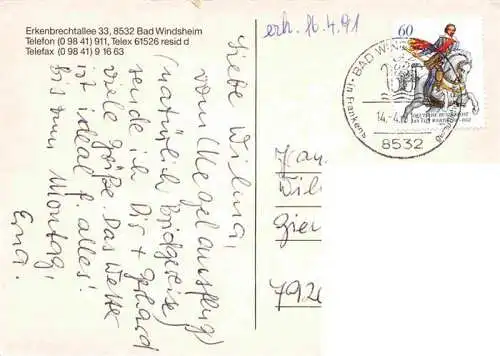 Erkenbrechtallee 33, 8532 Bad Windsheim
Telefon (0 98 41) 911, Telex 61526 resid d
Telefax (0 98 41) 9 16 63
erh. 16.4.91
60
BAD WIN
in Franken
14.-4.
8532
DEUTSCHE BUNDESPOST
Liebe Wilma,
vom (Kegelausflug)
(natürlich Bridgereise)
sende ich Dir + Gerhard
viele Grüße. Das Wetter
ist ideal f. alles!
Bis zum Montag,
Erna.
Wil
792